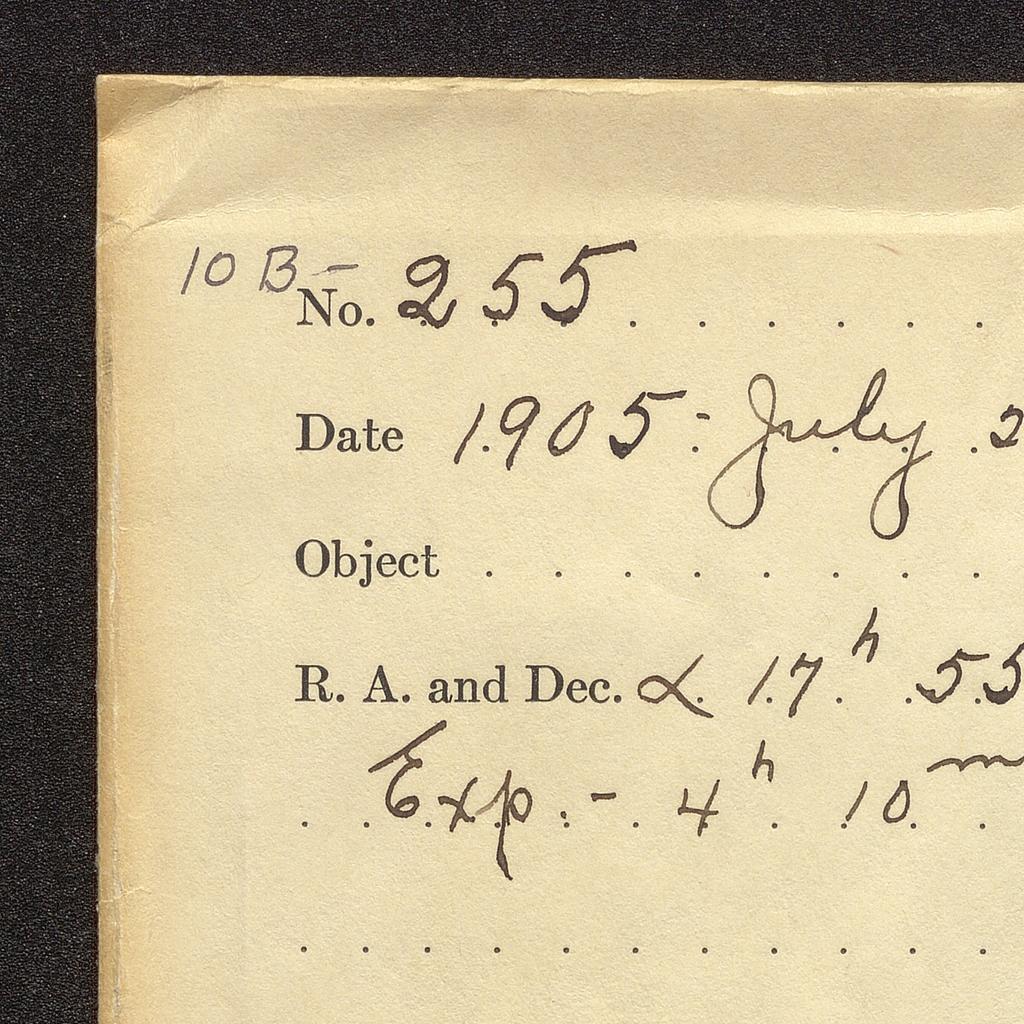 10 B - No. 255
Date 1905 - July 2
Object
R. A. and Dec. α 17ʰ 55
Exp. - 4ʰ 10ᵐ